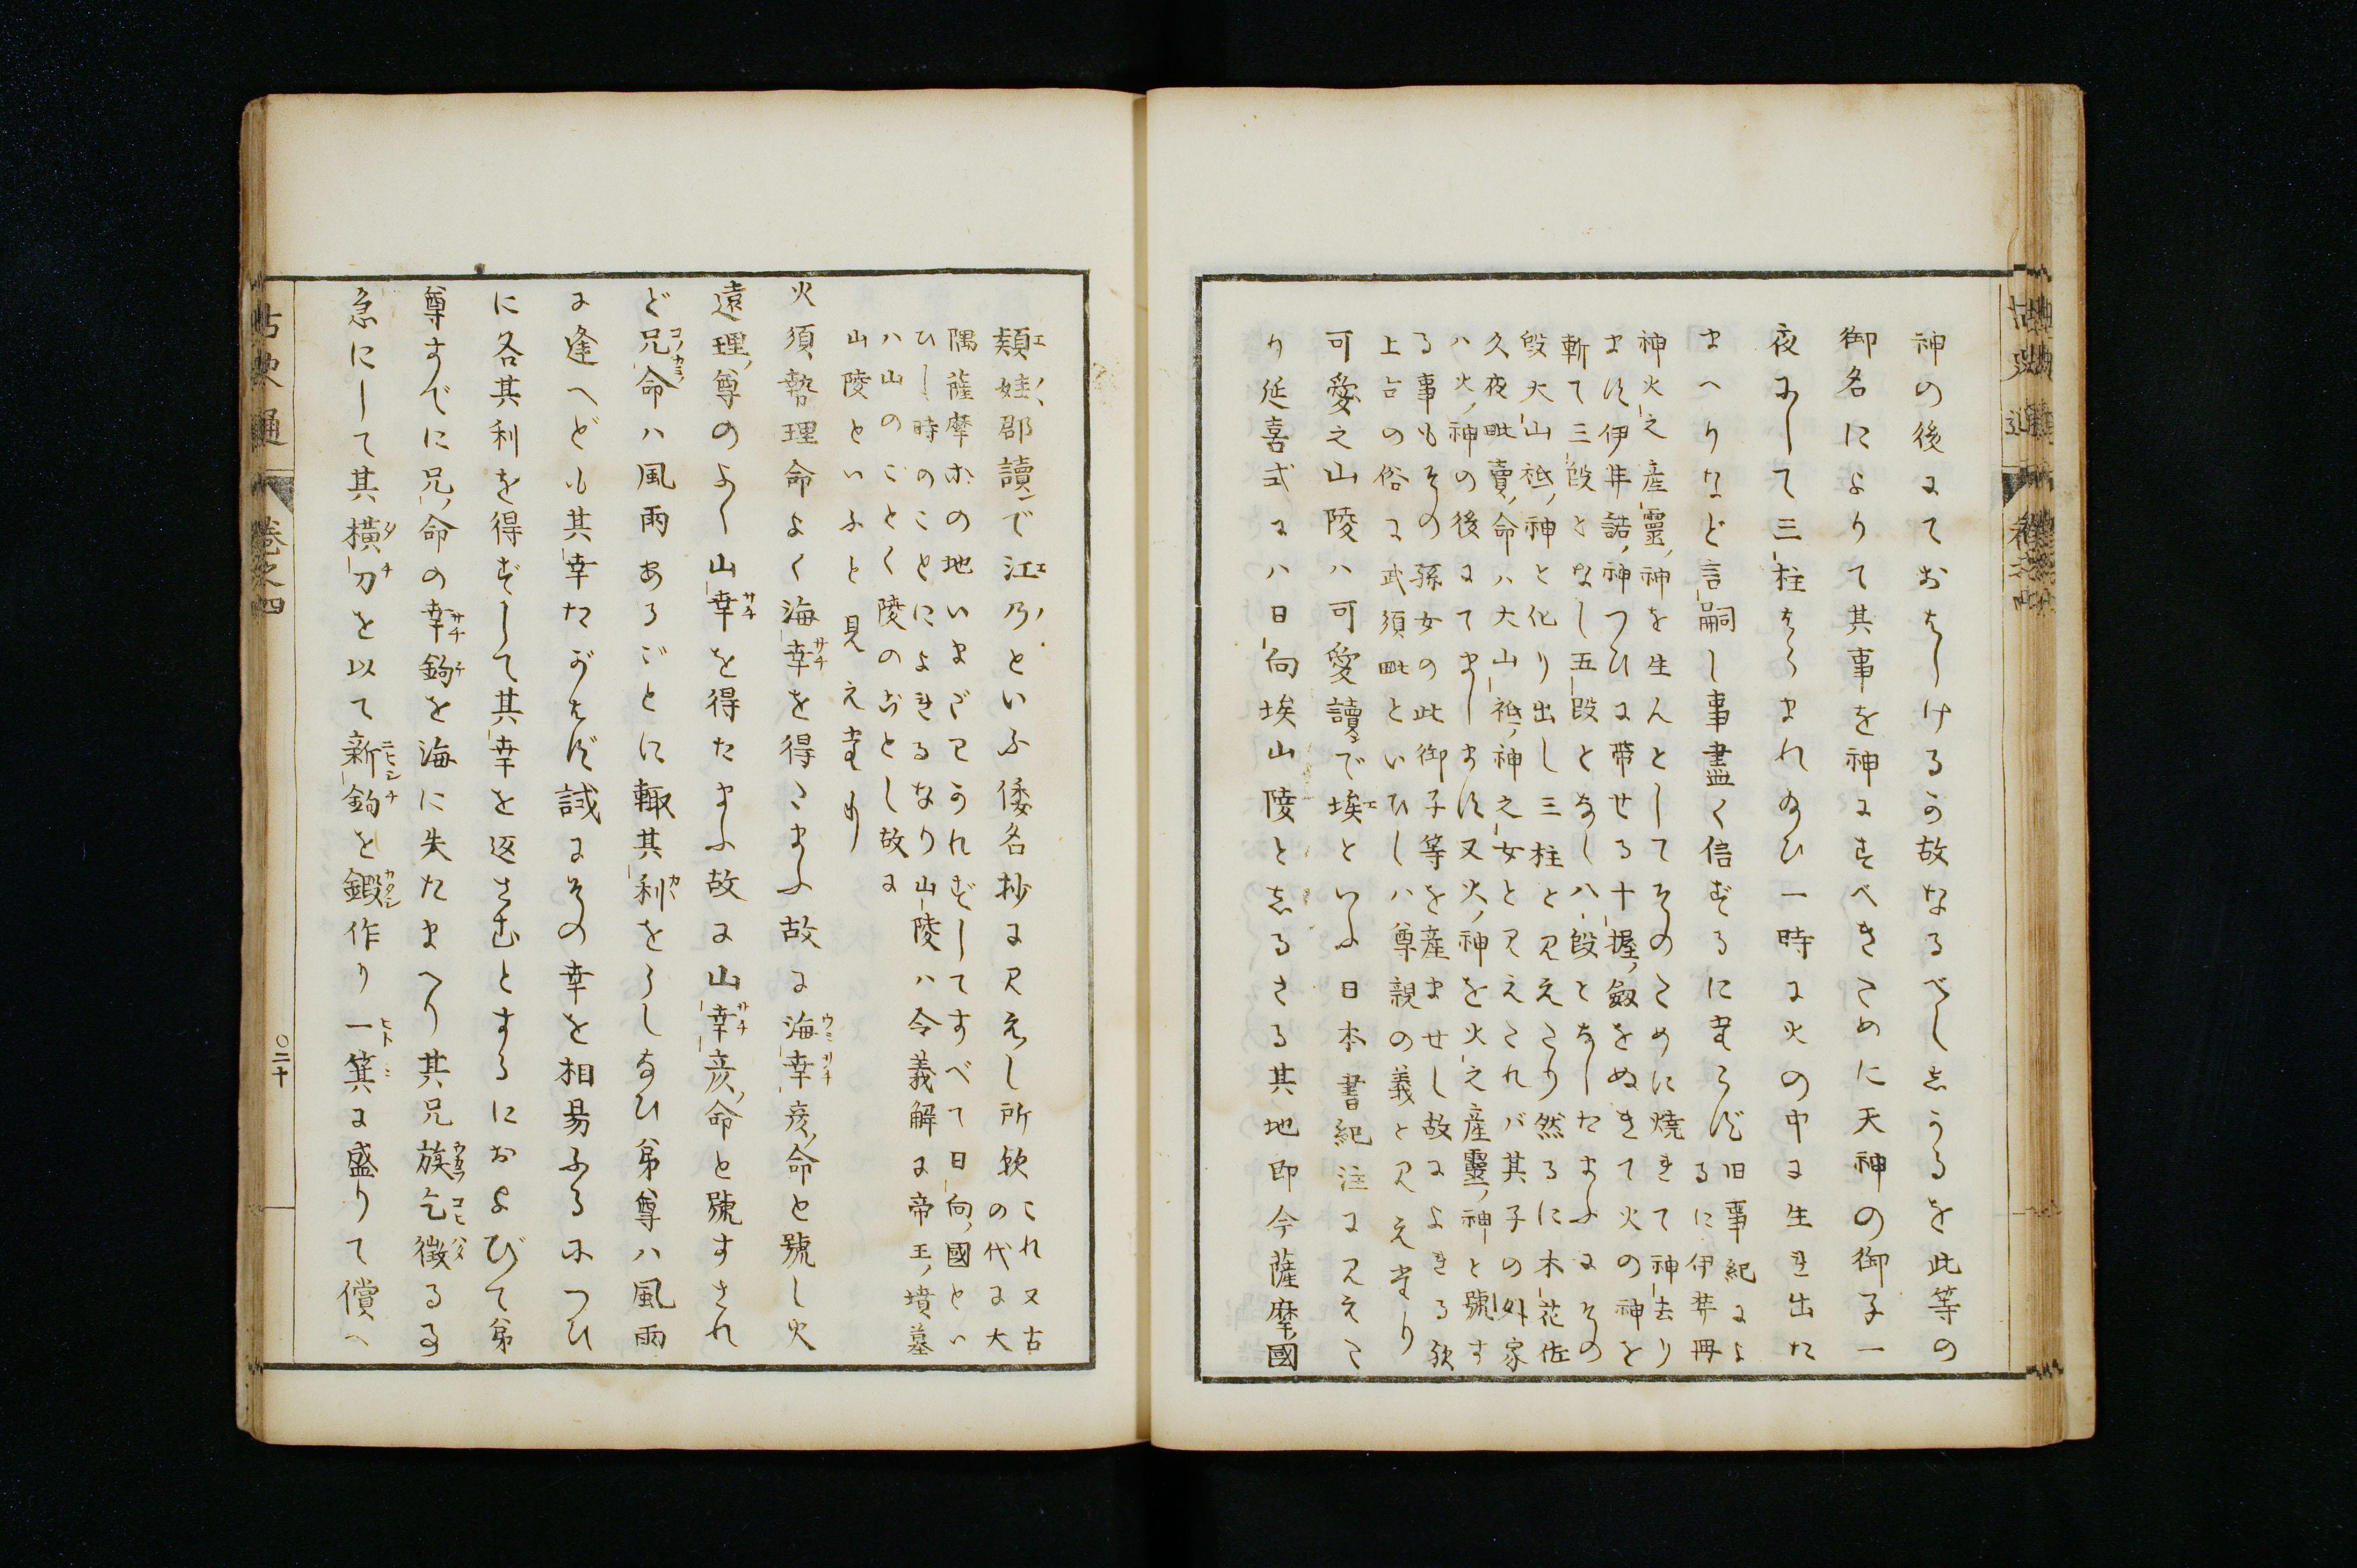 神の後にておはしける可故なるべし志かるを此等の
御名によりて其事を神にすべきために天神の御子一
夜にして三柱うまれ給ひ一時に火の中に生れ出た
まへりなど言嗣し事盡く信ずるにたらず旧事紀によ
るに伊弉冊
神火之産靈神を生んとしてそのために焼きて神去り
ます伊弉諾神つひに帯せる十握劔をぬきて火の神を
斬て三段となし五段となし八段となしたまふにその
段大山祗神と化り出し三柱と見えたり然るに木花佐
久夜毗賣命ハ大山祗神之女と見えたれバ其子の外家
ハ火神の後にてまします又火神を火之産靈神と號す
る事もその孫女の此御子等を産ませし故によれる歟
上古の俗に武須毗といひしハ尊親の義と見えたり
可愛之山陵ハ可愛讀で埃といふ日本書紀注に見えた
り延喜式にハ日向埃山陵と志るさる其地即今薩摩國
頴娃郡讀で江乃といふ倭名抄に見えし所歟これ又古の代に大
隅薩摩ホの地いまだわかれずしてすべて日向國とい
ひし時のことによれるなり山陵ハ令義解に帝王墳墓
ハ山のごとく陵のごとし故に
山陵といふと見えたり
火須勢理命よく海幸を得たまふ故に海幸彦命と號し火
遠理尊のよく山幸を得たまふ故に山幸彦命と號すされ
ど兄命ハ風雨あるごとに輙其利をうしなひ弟尊ハ風雨
に逢へども其幸たがはず試にその幸を相易ふるにつひ
に各其利を得ずして其幸を返さむとするにおよびて弟
尊すでに兄命の幸鉤を海に失たまへり其兄族乞徴るる
急にして其横刀を以て新鉤を鍛作り一箕に盛りて償へ
古史通
卷之四
〇二十